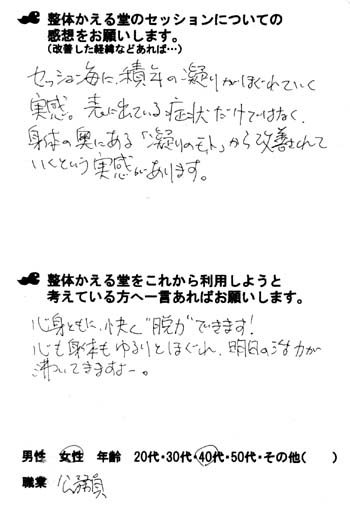 整体かえる堂のセッションについての
感想をお願いします。
(改善した経緯などあれば…)
セッション毎に、積年の凝りがほぐれていく
実感。表に出ている症状だけではなく、
身体の奥にある「凝りのモト」から改善されて
いくという実感があります。
整体かえる堂をこれから利用しようと
考えている方へ一言あればお願いします。
心身ともに、快く"脱力"できます!
心も身体もゆるりとほぐれ、明日の活力が
沸いてきますよー。
男性 女性 年齢 20代・30代・40代・50代・その他( )
職業 公務員